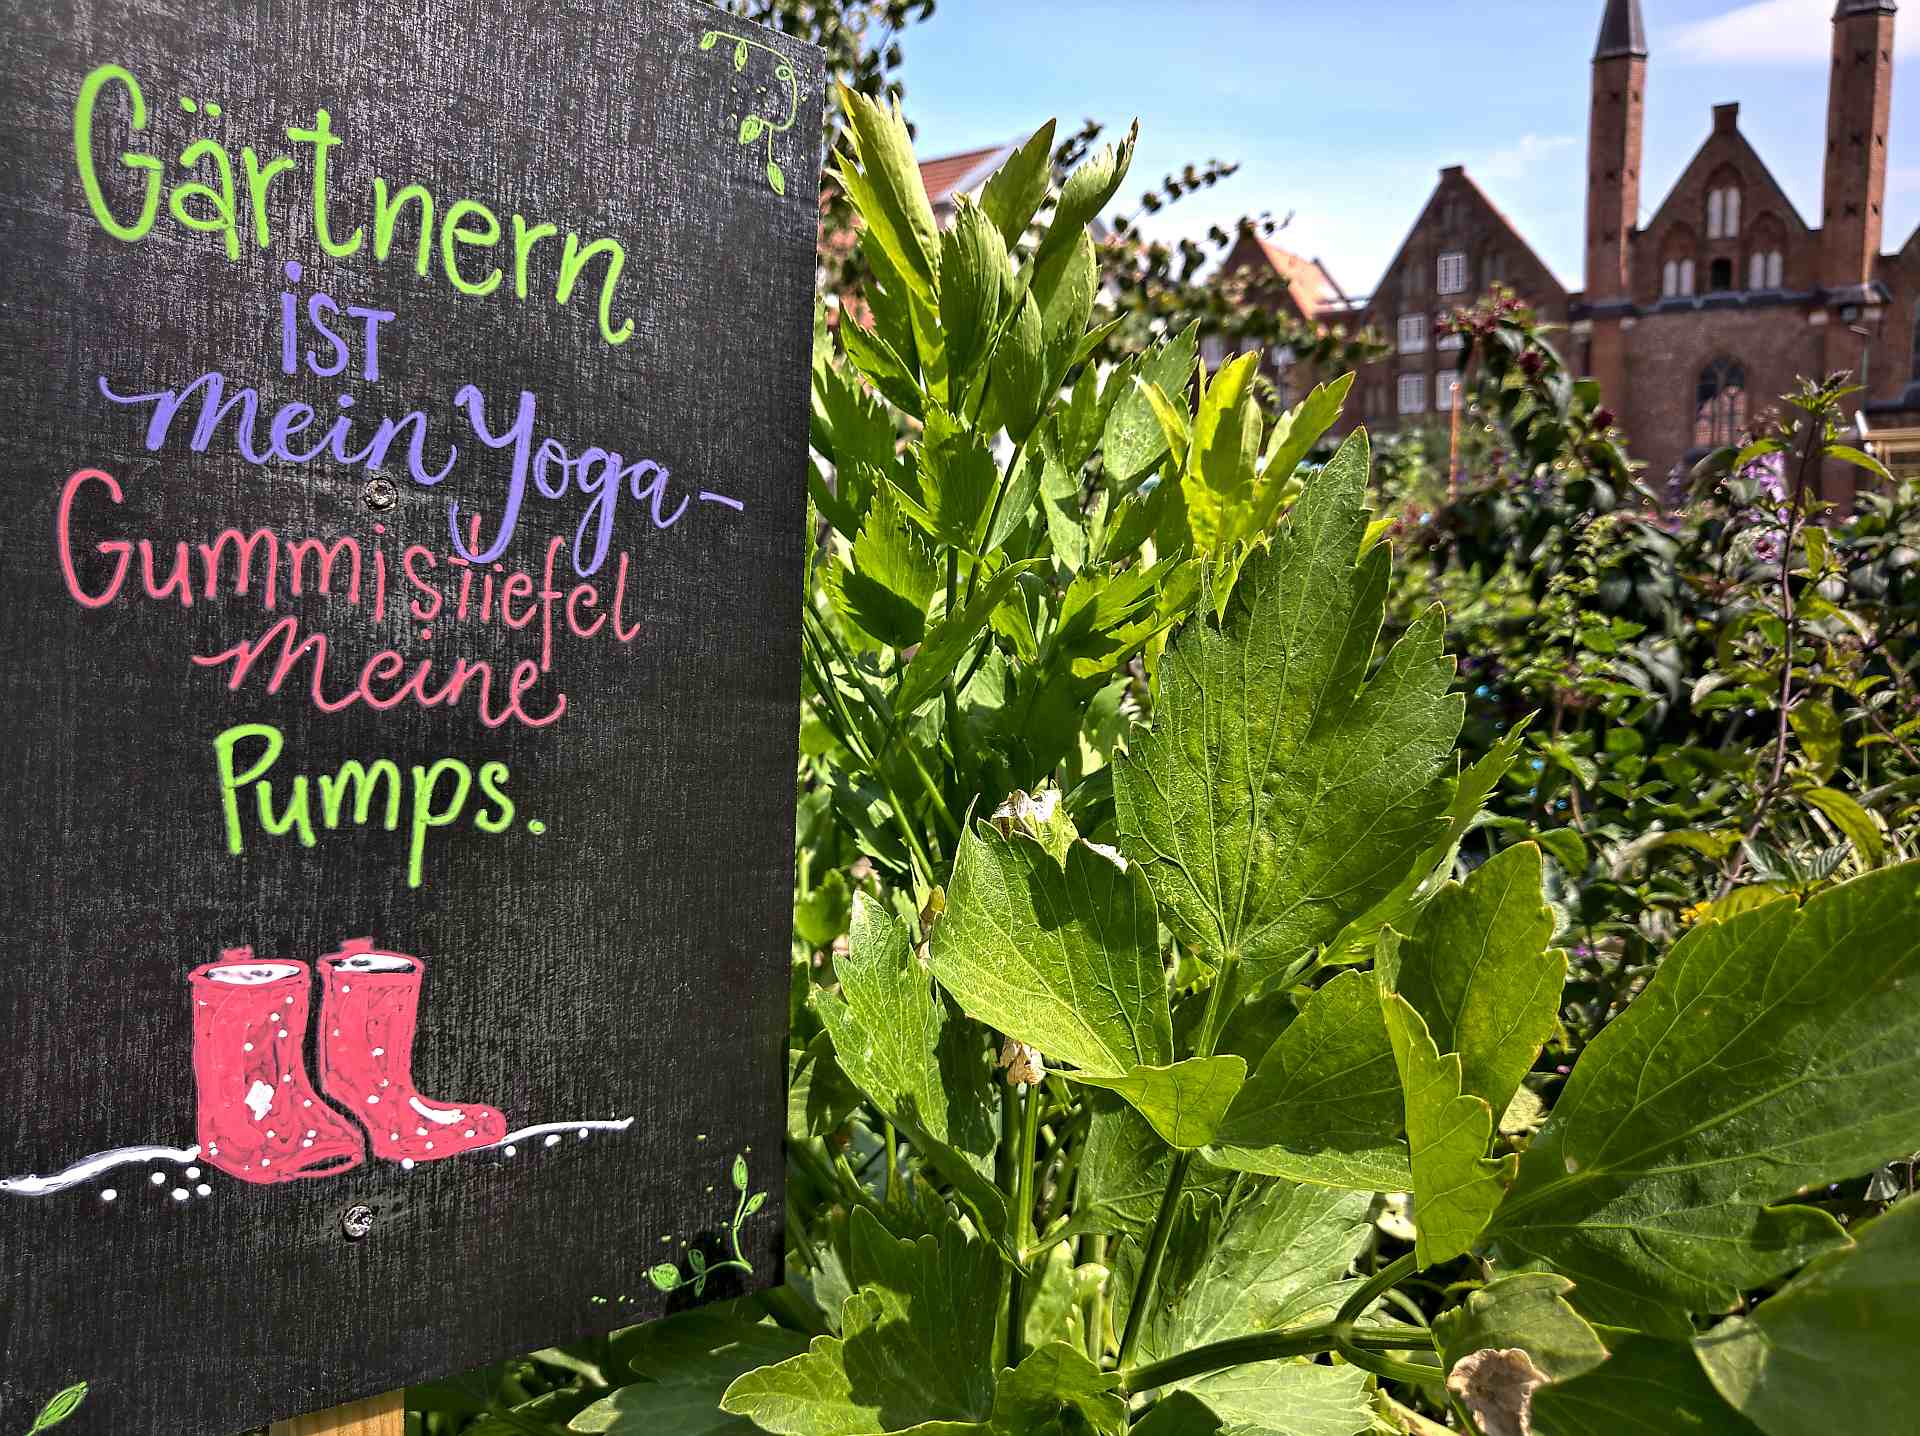 Gärtnern
ist
mein Yoga -
Gummistiefel
meine
Pumps.